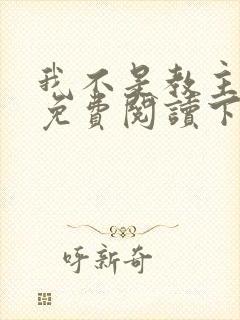 我不是教主
免費閱讀下
呼新奇